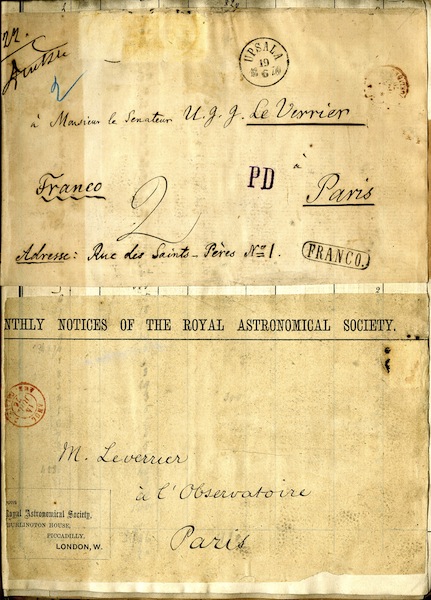 22
2
UPSALA
19
6
à Monsieur le Senateur U. J. J. Le Verrier
PD
à
Franco
2
Paris
Adresse: Rue des Saints-Pères No 1.
FRANCO.
NTHLY NOTICES OF THE ROYAL ASTRONOMICAL SOCIETY.
M. Leverrier
à l'Observatoire
Paris
Royal Astronomical Society,
BURLINGTON HOUSE,
PICCADILLY,
LONDON, W.